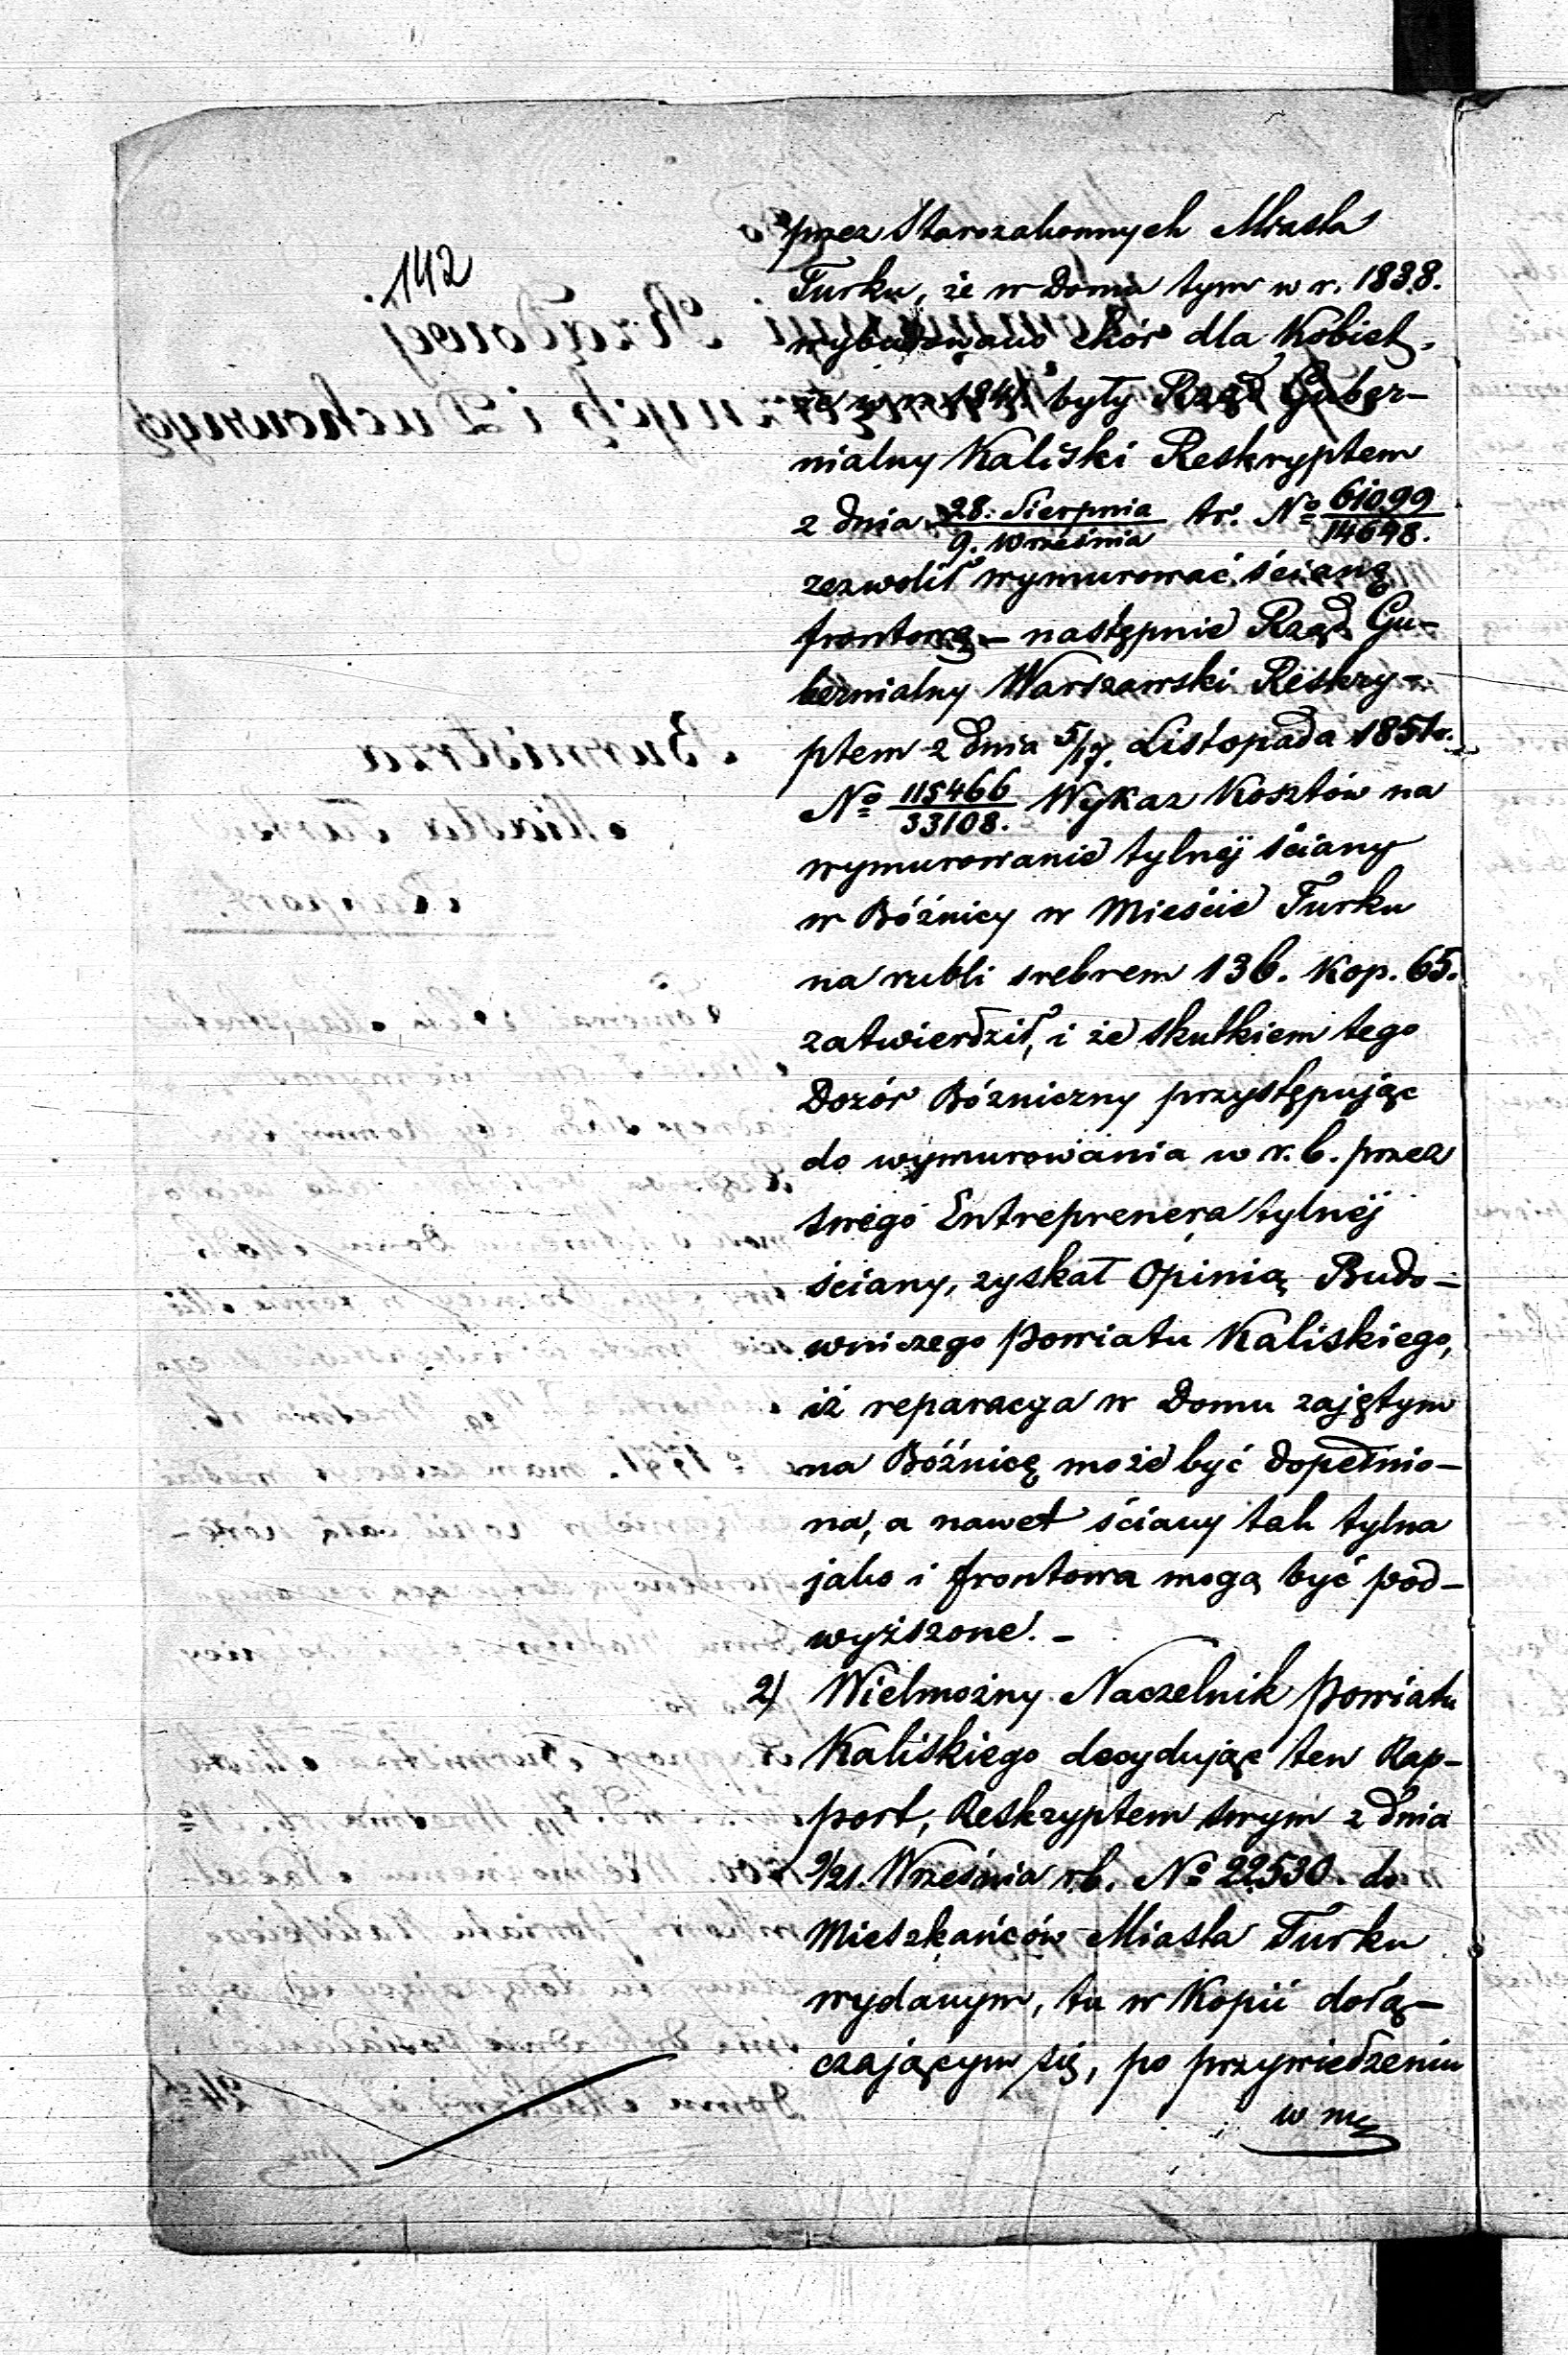 142
przez Starozakonnych Miasta
Turku, że w Domu tym w r. 1838.
wybudowano chór dla Kobiet,
że w r. 1841 były Rząd Guber-
nialny Kaliski Reskryptem
z dnia 28. Sierpnia / 9. Września tr. No 61099 / 14698.
zezwolił wymurować ścianę
frontową - następnie Rząd Gu-
bernialny Warszawski Reskry-
ptem z dnia 5/17. Listopada 1851 r.
No 115466 / 33108. Wykaz Kosztów na
wymurowanie tylnéj ściany
w Bóźnicy w Mieście Turku
na rubli srebrem 136. Kop. 65.
zatwierdził, i że skutkiem tego
Dozór Bózniczny przystępując
do wymurowania w r. b. przez
swego Entreprenera tylnéj
ściany, zyskał Opinią Budo-
wniczego Powiatu Kaliskiego,
iż reparacya w Domu zajętym
na Bóźnicę może być dopełnio-
na, a nawet ściany tak tylna
jako i frontowa mogą być pod-
wyższone. -
2) Wielmożny Naczelnik Powiatu
Kaliskiego decydując ten Rap-
port, Reskryptem swym z dnia
9/21. Września r.b. No 22530. do
Mieszkańców Miasta Turku
wydanym, tu w Kopii dołą-
czającym się, po przywiedzeniu